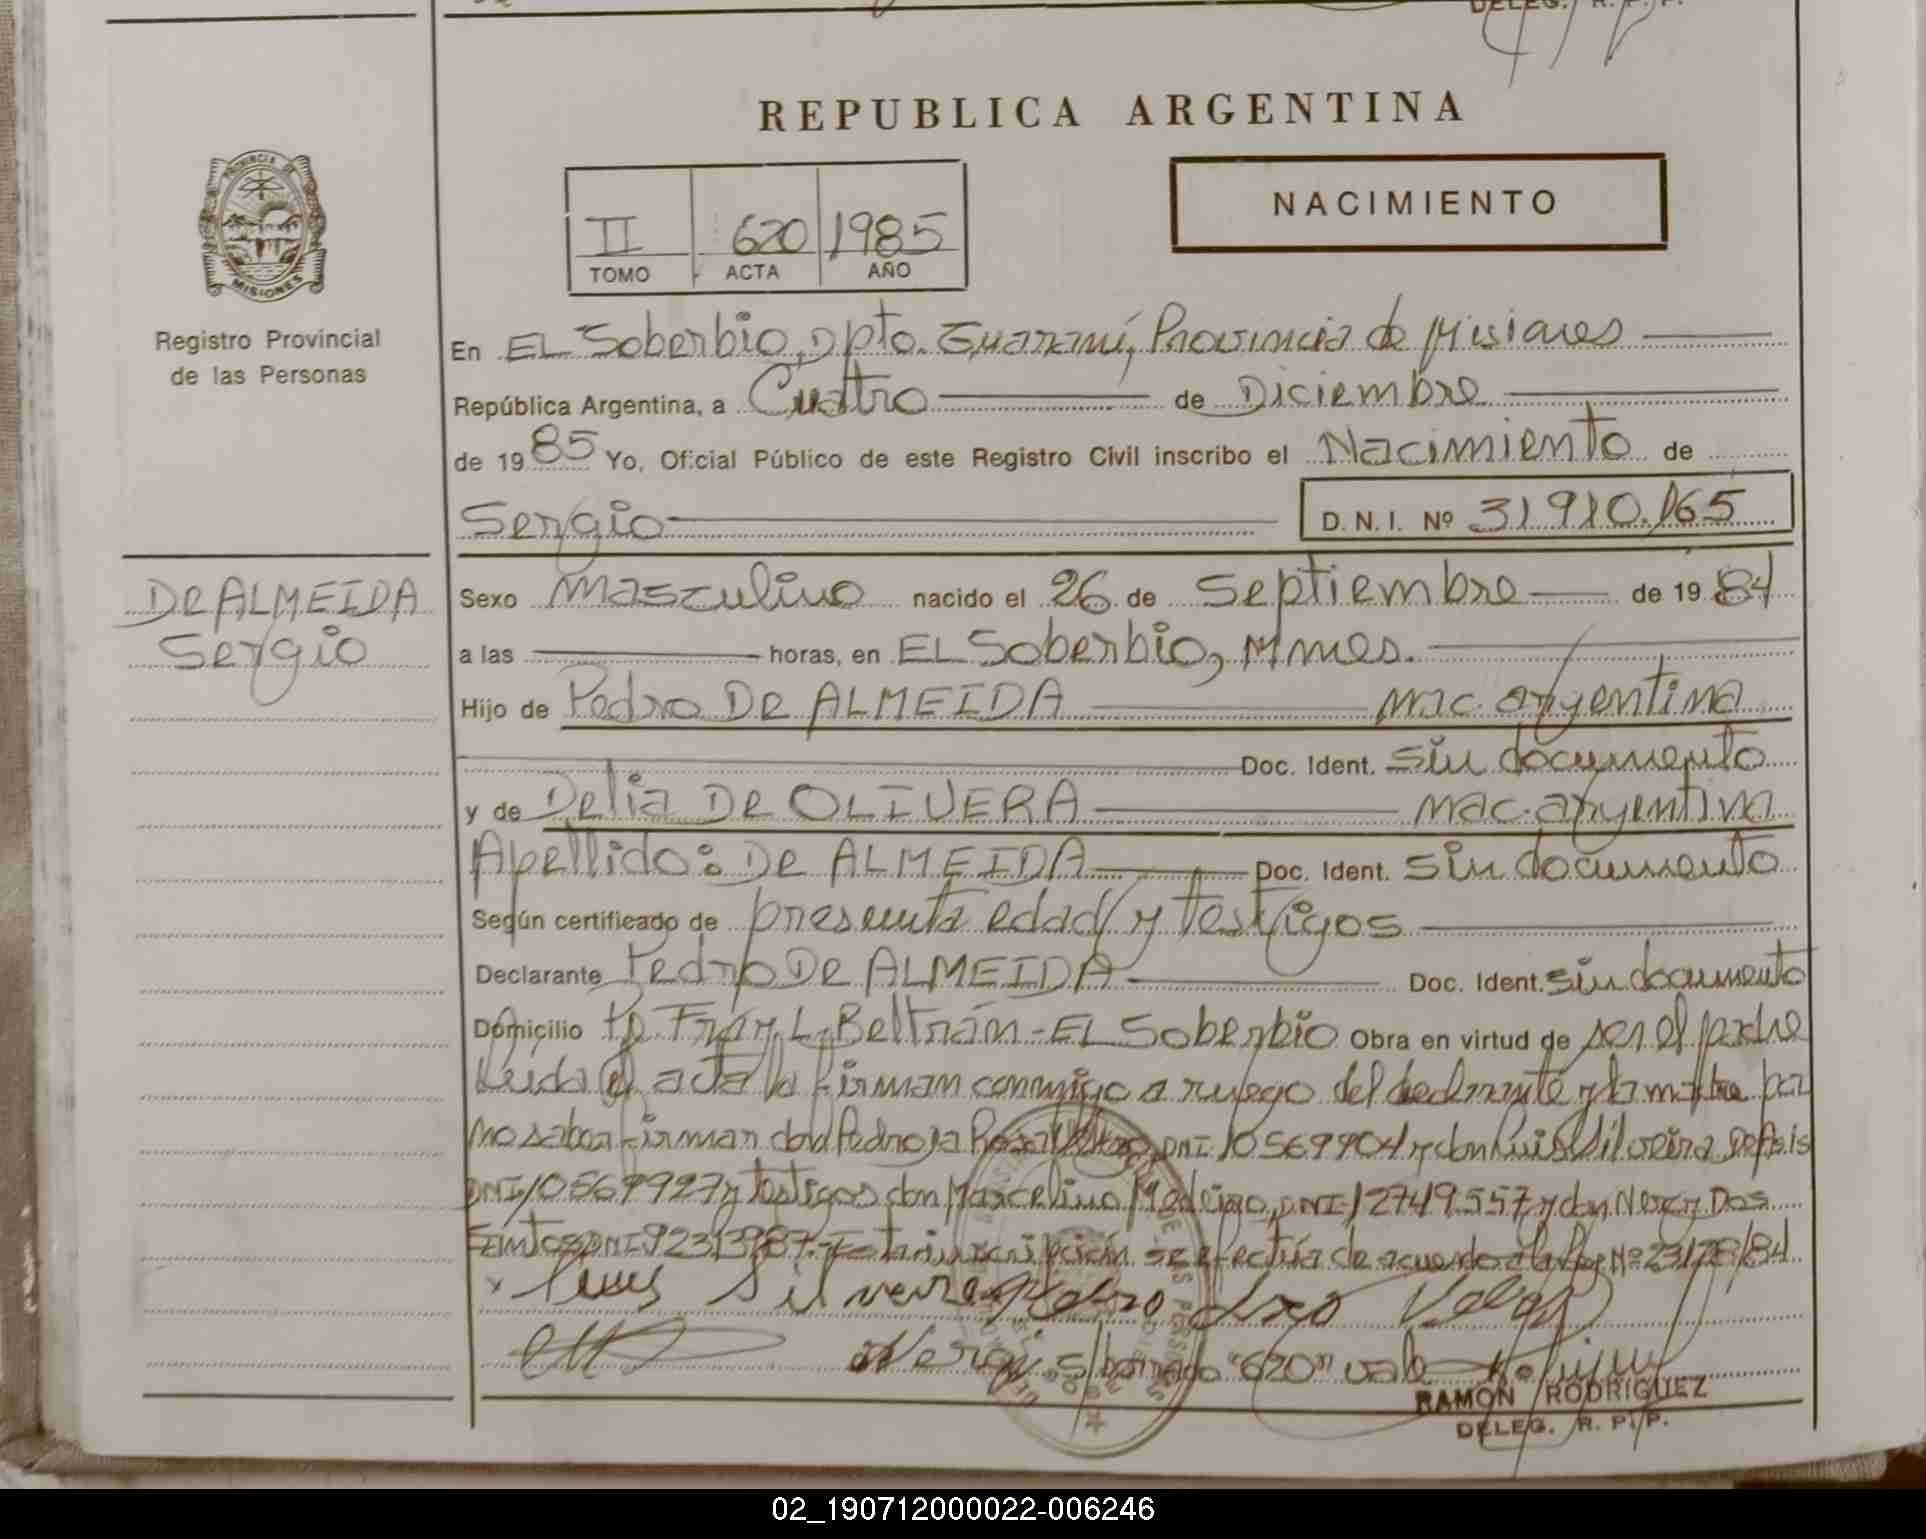 DELEG. R. P. P.
REPUBLICA ARGENTINA
PROVINCIA DE
MISIONES
Registro Provincial
de las Personas
II 620 1985
TOMO ACTA AÑO
NACIMIENTO
En EL Soberbio, Dpto. Guaraní, Provincia de Misiones
República Argentina, a Cuatro de Diciembre
de 1985 Yo, Oficial Público de este Registro Civil inscribo el Nacimiento de
Sergio D.N.I. Nº 31.910.165
DE ALMEIDA
Sergio
Sexo masculino nacido el 26 de Septiembre de 1984
a las horas, en EL Soberbio, Mnes.
Hijo de Pedro DE ALMEIDA nac. argentina
Doc. Ident. sin documento
y de Delia DE OLIVERA nac. argentina
Apellido: DE ALMEIDA Doc. Ident. sin documento
Según certificado de presunta edad y testigos
Declarante Pedro DE ALMEIDA Doc. Ident. sin documento
Domicilio Fray L. Beltrán - EL Soberbio Obra en virtud de ser el padre
Leida el acta la firman conmigo a ruego del declarante y la madre por
no saber firmar don Pedro DNI 10569904 y don Luis Silveira De Asis
DNI 10569927 y testigos don Marcelino Madeiro, DNI 12749.557 y don Nercy Dos
Santos DNI 92313987. Esta inscripción se efectúa de acuerdo a la Ley Nº 23128/84
x Luis Silveira Pedro
S/borrado "620" vale
RAMON RODRIGUEZ
DELEG. R. P. P.
02_190712000022-006246